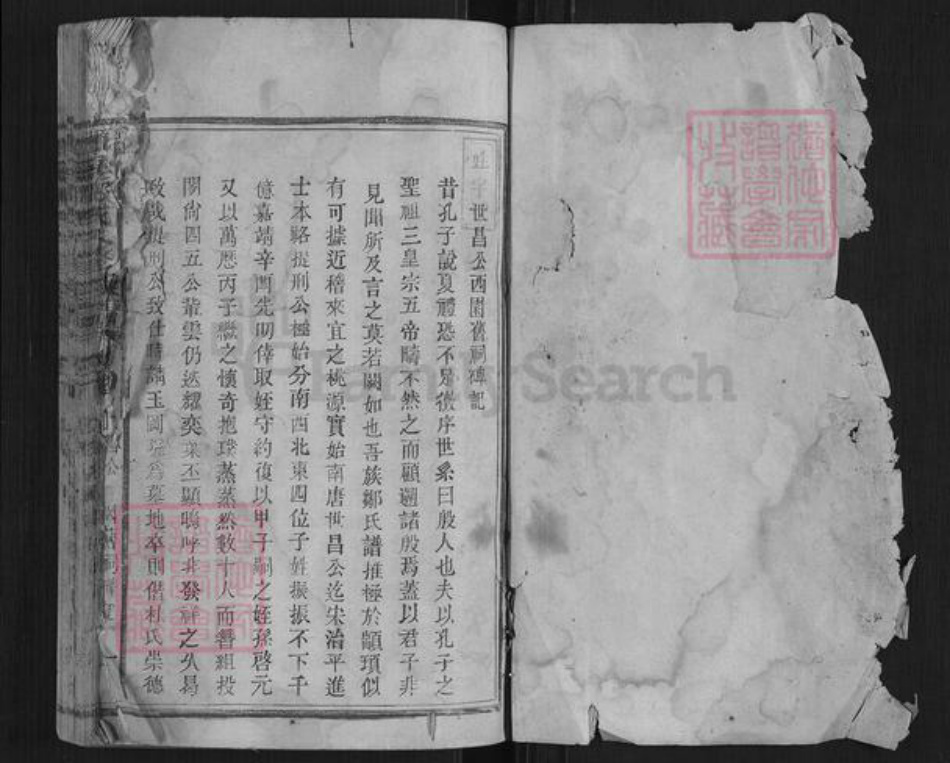 世昌公西園舊祠碑記
昔孔子說夏禮恐不足徵序世系曰殷人也夫以孔子之
聖祖三皇宗五帝疇不然之而顧遡諸殷焉蓋以君子非
見聞所及言之莫若闕如也吾族鄒氏譜推極於顓頊似
有可據近稽來宜之桃源實始南唐世昌公迄宋治平進
士本略提刑公極始分南西北東四位子姓振振不下千
億嘉靖辛酉先明倖取姪守約復以甲子嗣之姪孫啓元
又以萬曆丙子繼之懷奇抱璞蒸蒸然數十人而簪組投
閒尚四五公輩雲仍迭耀奕葉丕顯嗚呼非發祥之久曷
致哉提刑公致仕時請玉岡為墓地卒則偕杜氏崇德
一
FamilySearch
猶他家
譜學會
收藏